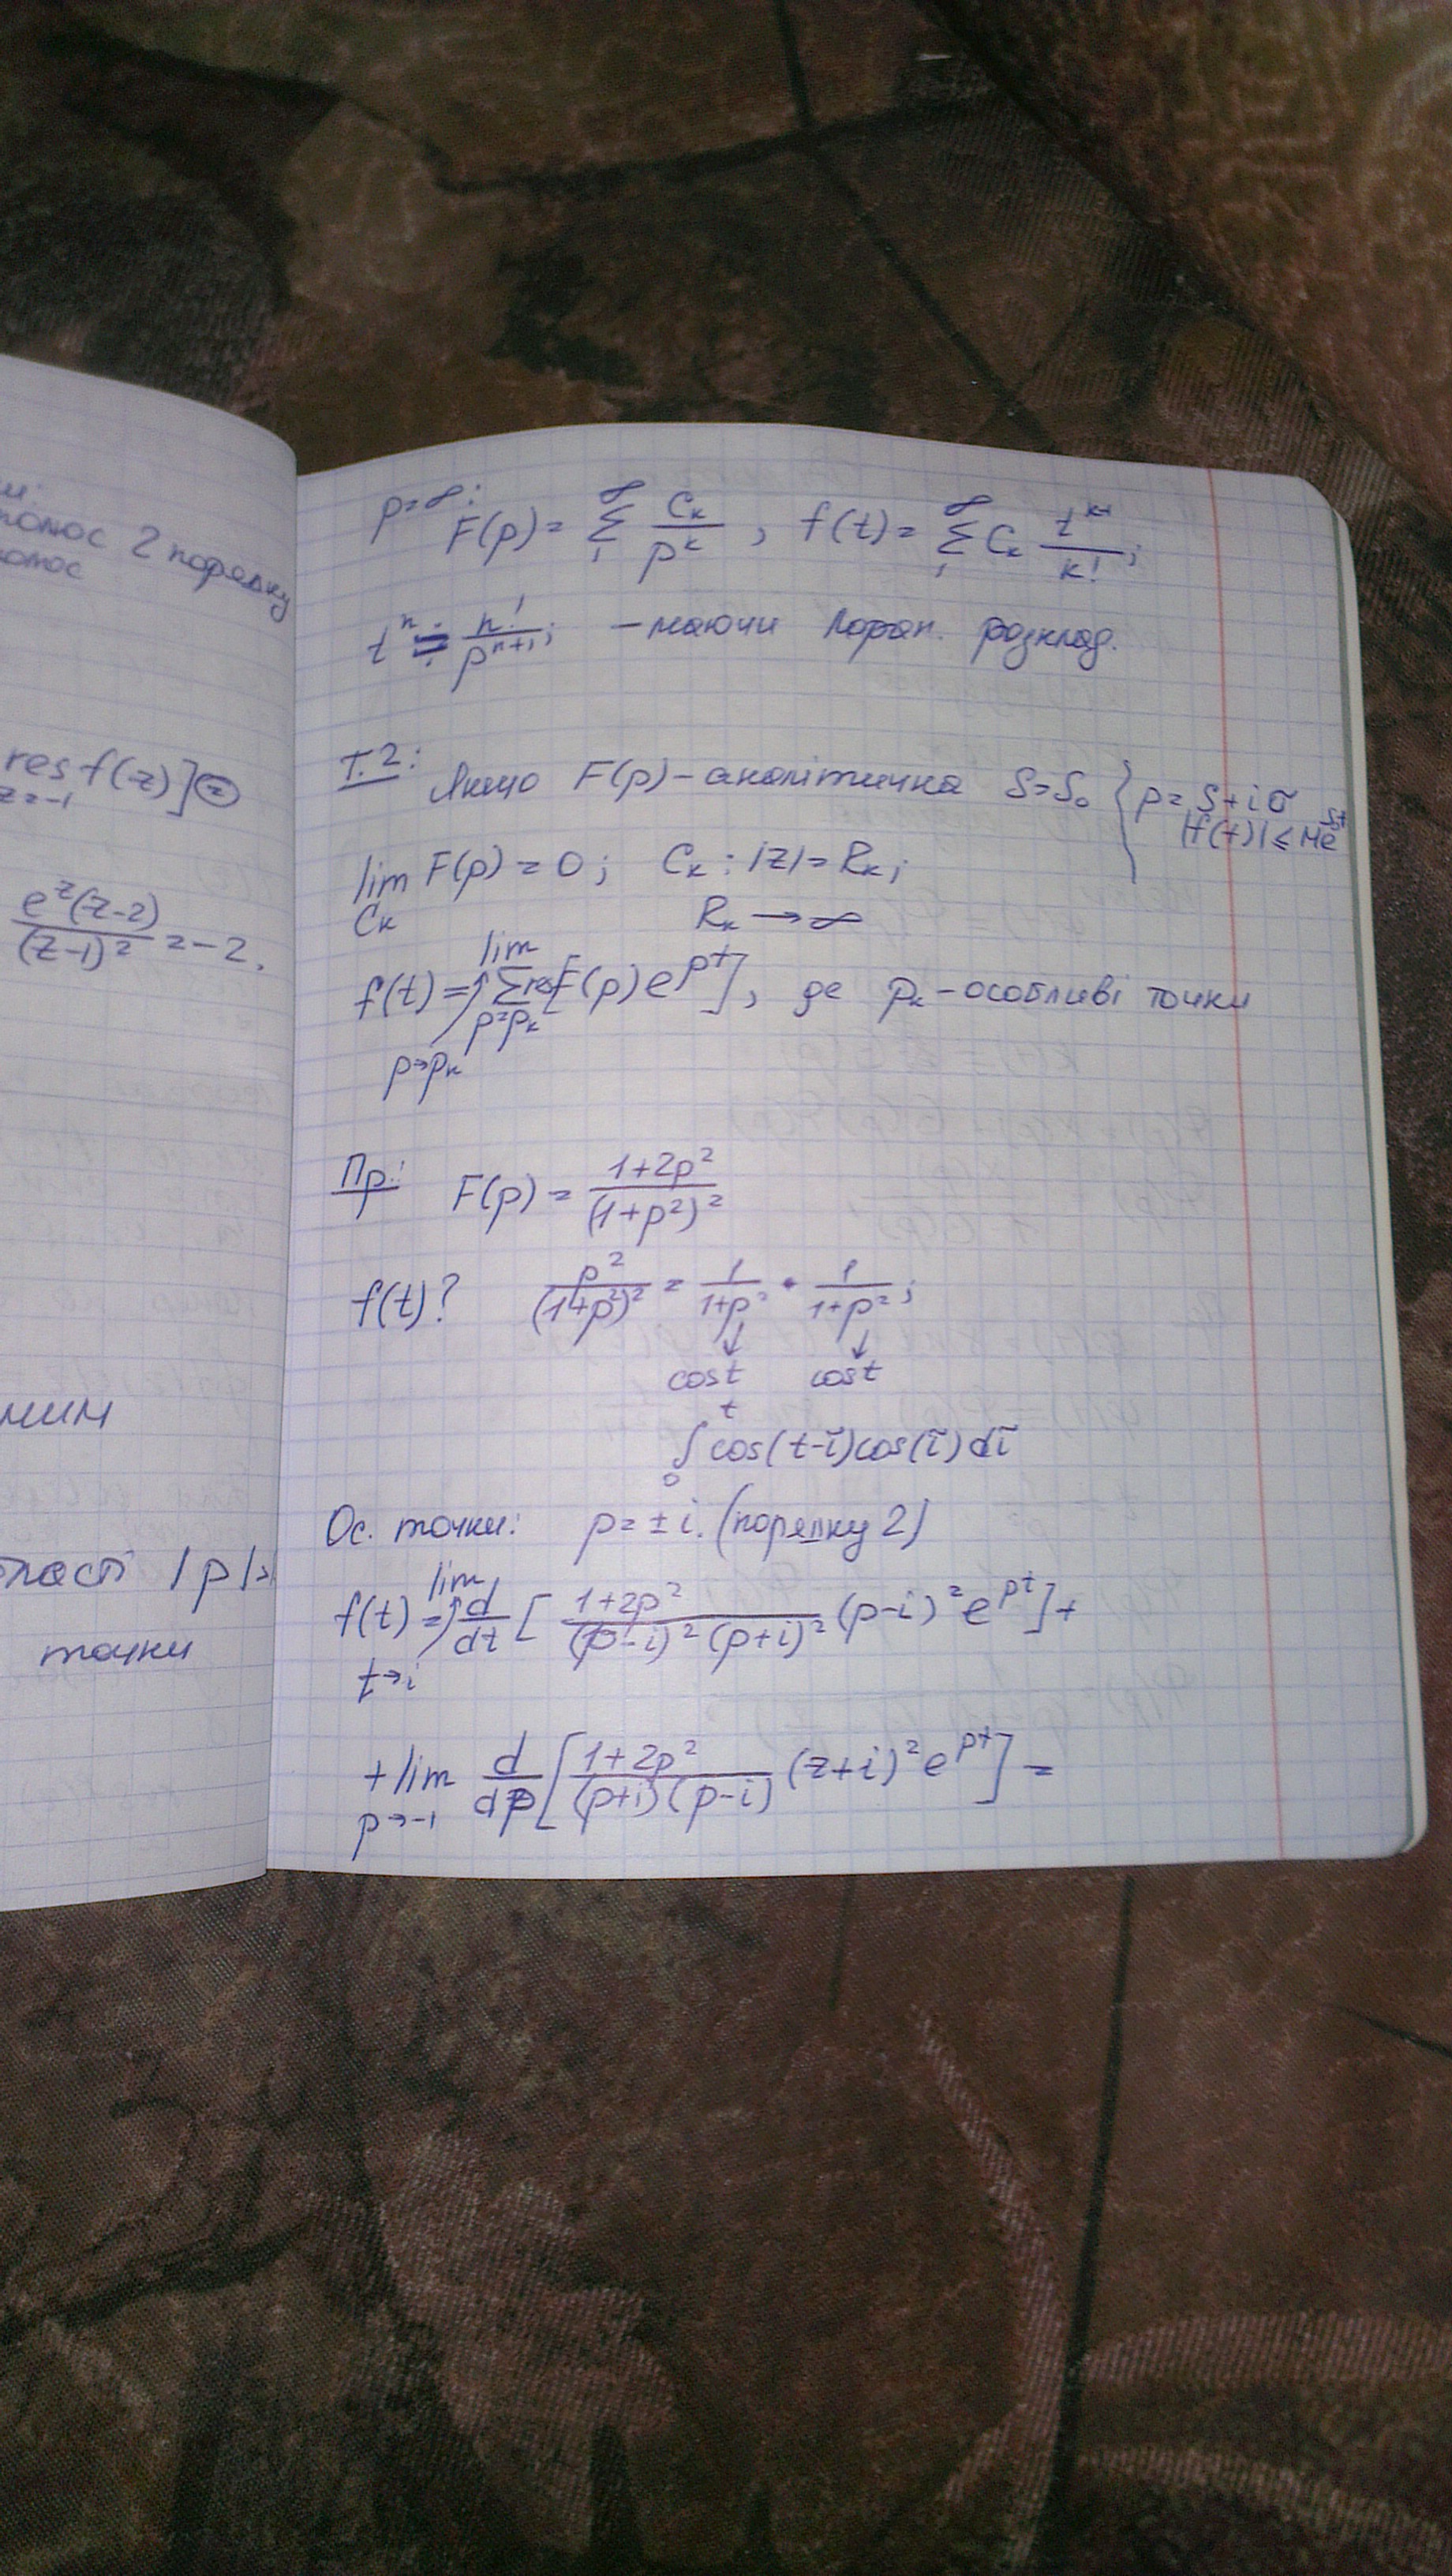 и:
полюс 2 порядку
полюс
res f(z)] ⊜
z=-1
e^z(z-2)
(z-1)^2 = -2.
ним
області |p|>
точки
p=∞:
F(p) = ∑_1^∞ C_k / p^k , f(t) = ∑_1^∞ C_k t^{k-1} / k! ;
t^n ≑ n! / p^{n+1} ; – маючи Лоран. розклад.
Т.2: Якщо F(p) – аналітична S>S_0 } p = S+iσ
|f(t)| ≤ Me^{S_0t}
lim F(p) = 0 ; C_k : |z| = R_k ;
C_k R_k → ∞
lim
f(t) = ∑ res[F(p) e^{pt}], де p_k – особливі точки
p=p_k
p→p_k
Пр: F(p) = (1+2p^2) / (1+p^2)^2
f(t)? p^2 / (1+p^2)^2 = 1 / (1+p^2) • 1 / (1+p^2) ;
↓ ↓
cos t cos t
∫_0^t cos(t-τ)cos(τ)dτ
Ос. точки: p = ± i. (порядку 2)
lim
f(t) = d/dt [ (1+2p^2) / ((p-i)^2 (p+i)^2) (p-i)^2 e^{pt} ] +
t→i
+ lim d/dp [ (1+2p^2) / ((p+i)(p-i)) (z+i)^2 e^{pt} ] =
p→-1